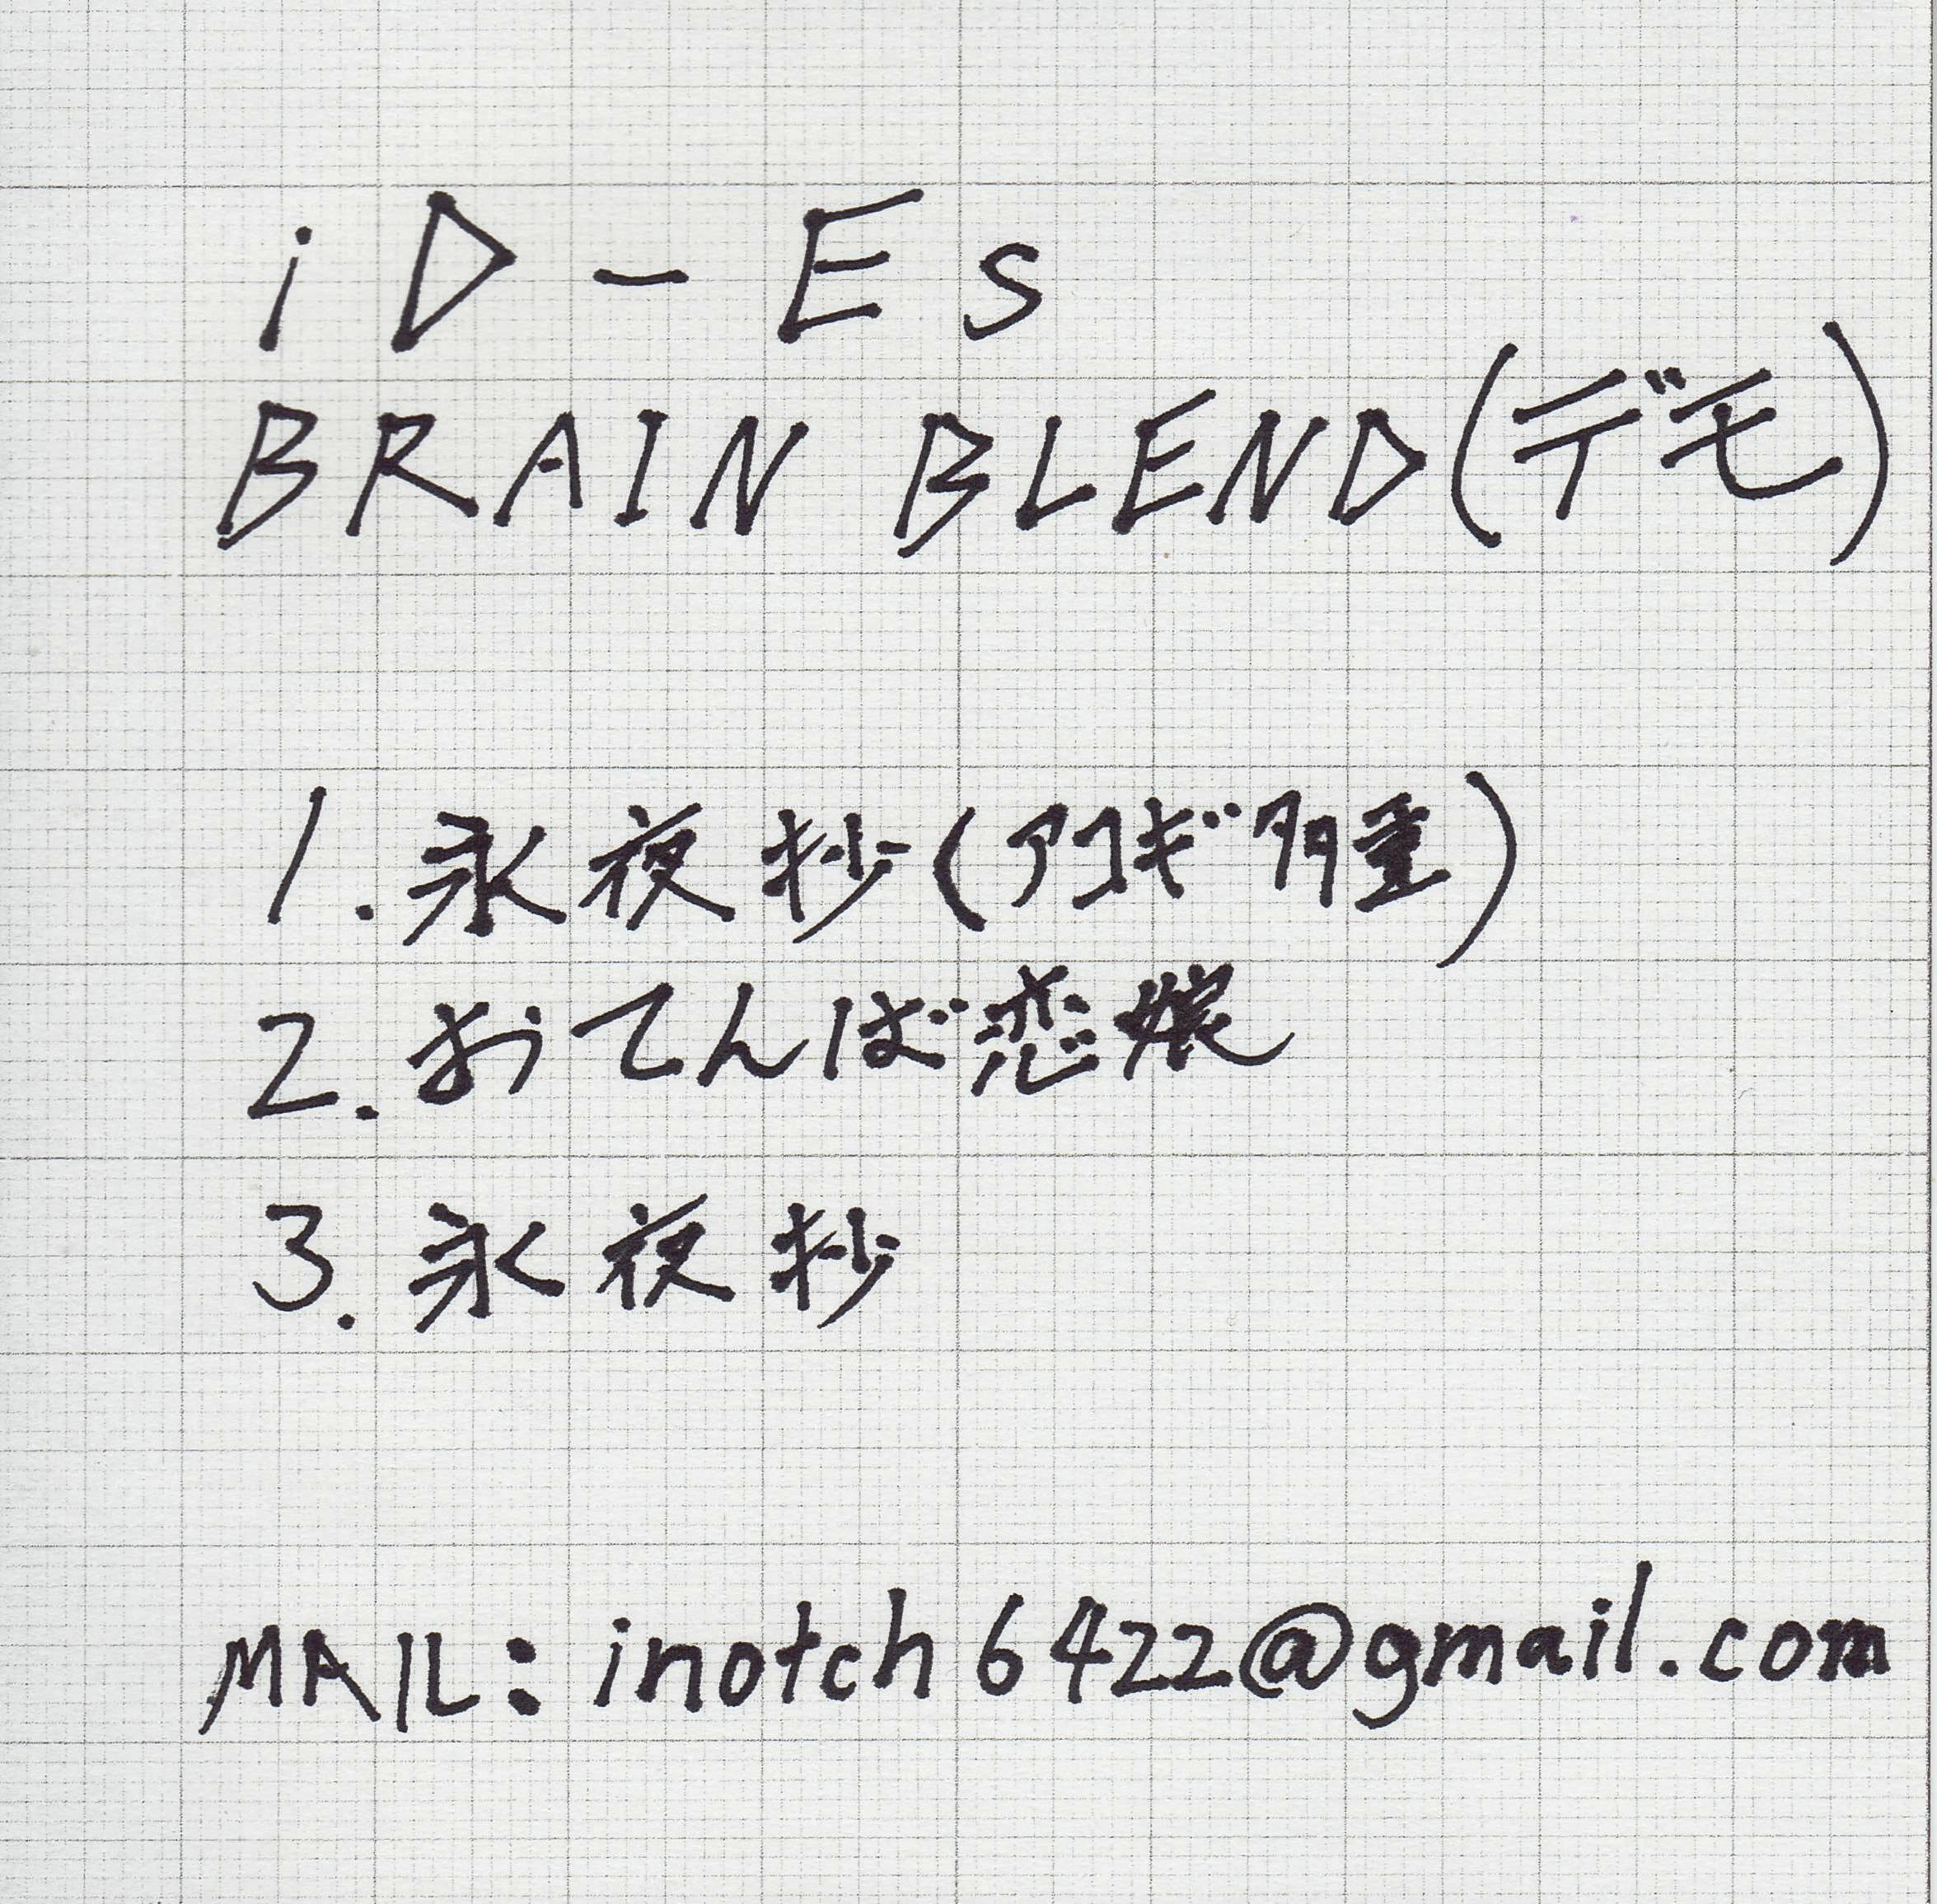 iD-Es
BRAIN BLEND(デモ)
1.永夜抄(アコギ多重)
2.おてんば恋娘
3.永夜抄
MAIL:inotch6422@gmail.com